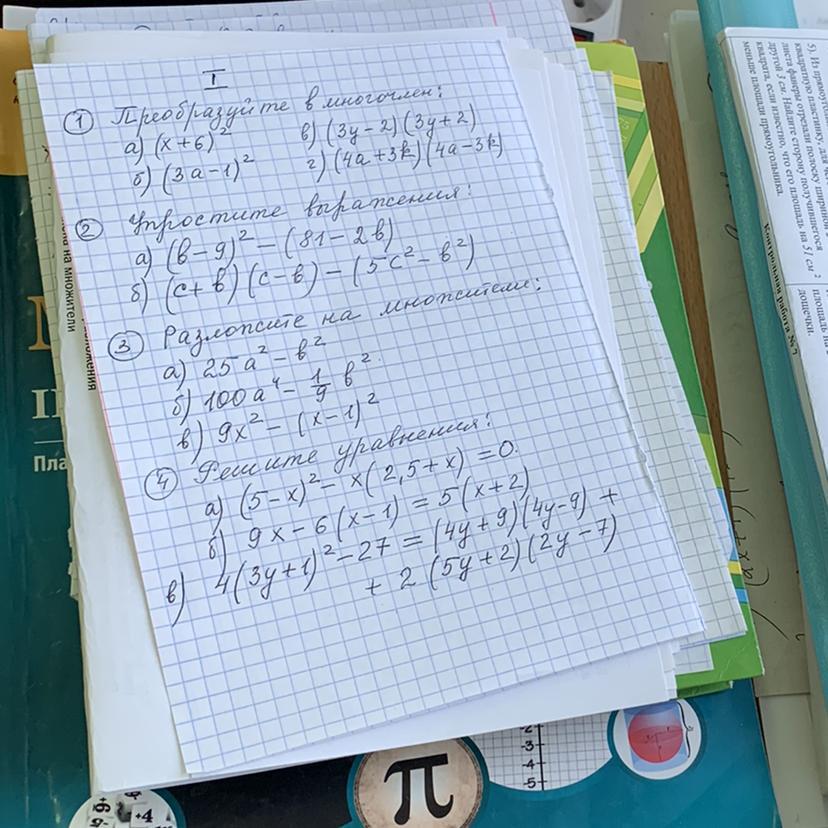 I
① Преобразуйте в многочлен:
а) (x+6)² в) (3y-2)(3y+2)
б) (3a-1)² г) (4a+3k)(4a-3k)
② Упростите выражения:
а) (b-9)² - (81-2b)
б) (c+b)(c-b) - (5c²-b²)
③ Разложите на множители:
а) 25a² - b²
б) 100a⁴ - 1/9 b².
в) 9x² - (x-1)²
④ Решите уравнения:
а) (5-x)² - x(2,5+x) = 0.
б) 9x - 6(x-1) = 5(x+2)
в) 4(3y+1)² - 27 = (4y+9)(4y-9) +
+ 2(5y+2)(2y-7)
на множители
ложения
Пла
π
-2
-3
-4
-5
+4
5). Из прямоуг
квадратную пластинку, для че
листа фанеры отрезали полоску шириной 2
другой 3 см. Найдите сторону получившегося
квадрата, если известно, что его площадь на 51 см²
меньше площади прямоугольника.
Контрольная работа №
площадь на
дощечки.